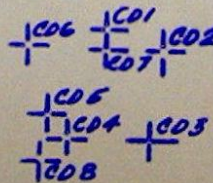 C06 C01 C02
C07
C05
C04 C03
C08